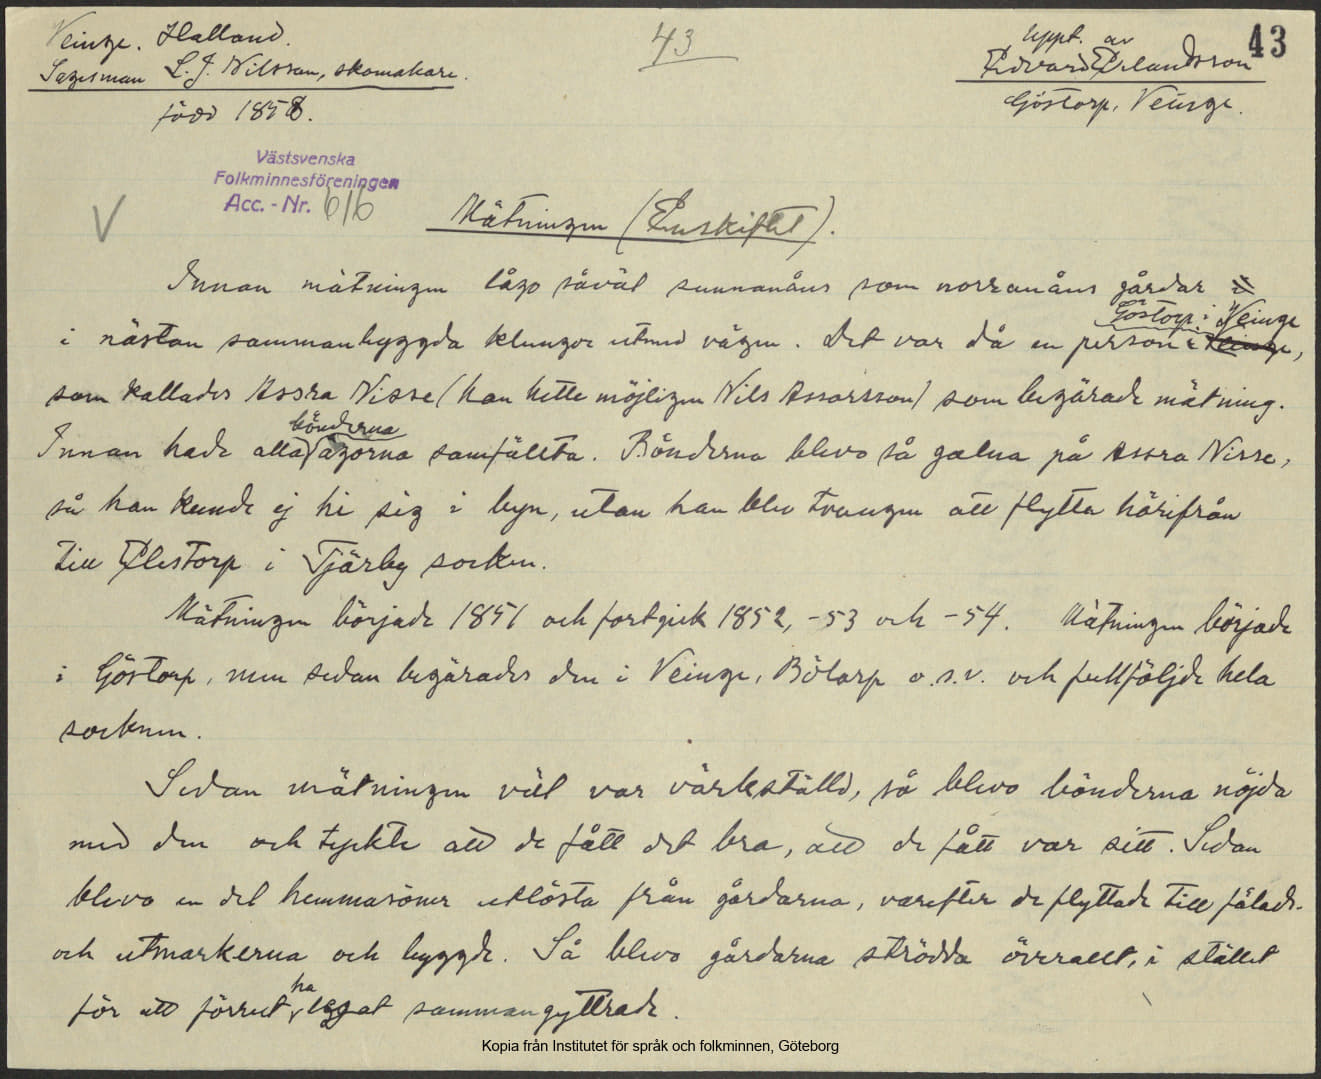 Veinge. Halland.
Sagesman L. J. Nilsson, skomakare.
född 1858.
43
Uppt. av
Edvard Erlandsson
Göstorp, Veinge.
43
Västsvenska
Folkminnesföreningen
Acc. - Nr. 616
V
Mätningen (Enskiftet).
Innan mätningen lågo såväl sunnanåns som norranåns gårdar i
i nästan sammanbyggda klungor utmed vägen. Det var då en person i Göstorp i Veinge,
som kallades Assra Nisse (han hette möjligen Nils Assarsson) som begärade mätning.
Innan hade alla bönderna ägorna samfällta. Bönderna blevo så galna på Assra Nisse,
så han kunde ej hi sig i byn, utan han blev tvungen att flytta härifrån
till Elestorp i Tjärby socken.
Mätningen började 1851 och fortgick 1852, -53 och -54. Mätningen började
i Göstorp, men sedan begärades den i Veinge, Bölarp o.s.v. och fullföljde hela
socknen.
Sedan mätningen väl var värkställd, så blevo bönderna nöjda
med den och tyckte att de fått det bra, att de fått var sitt. Sedan
blevo en del hemmasöner utlösta från gårdarna, varefter de flyttade till fälads-
och utmarkerna och byggde. Så blevo gårdarna strödda överallt, i stället
för att förrut ha legat sammangyttrade.
Kopia från Institutet för språk och folkminnen, Göteborg